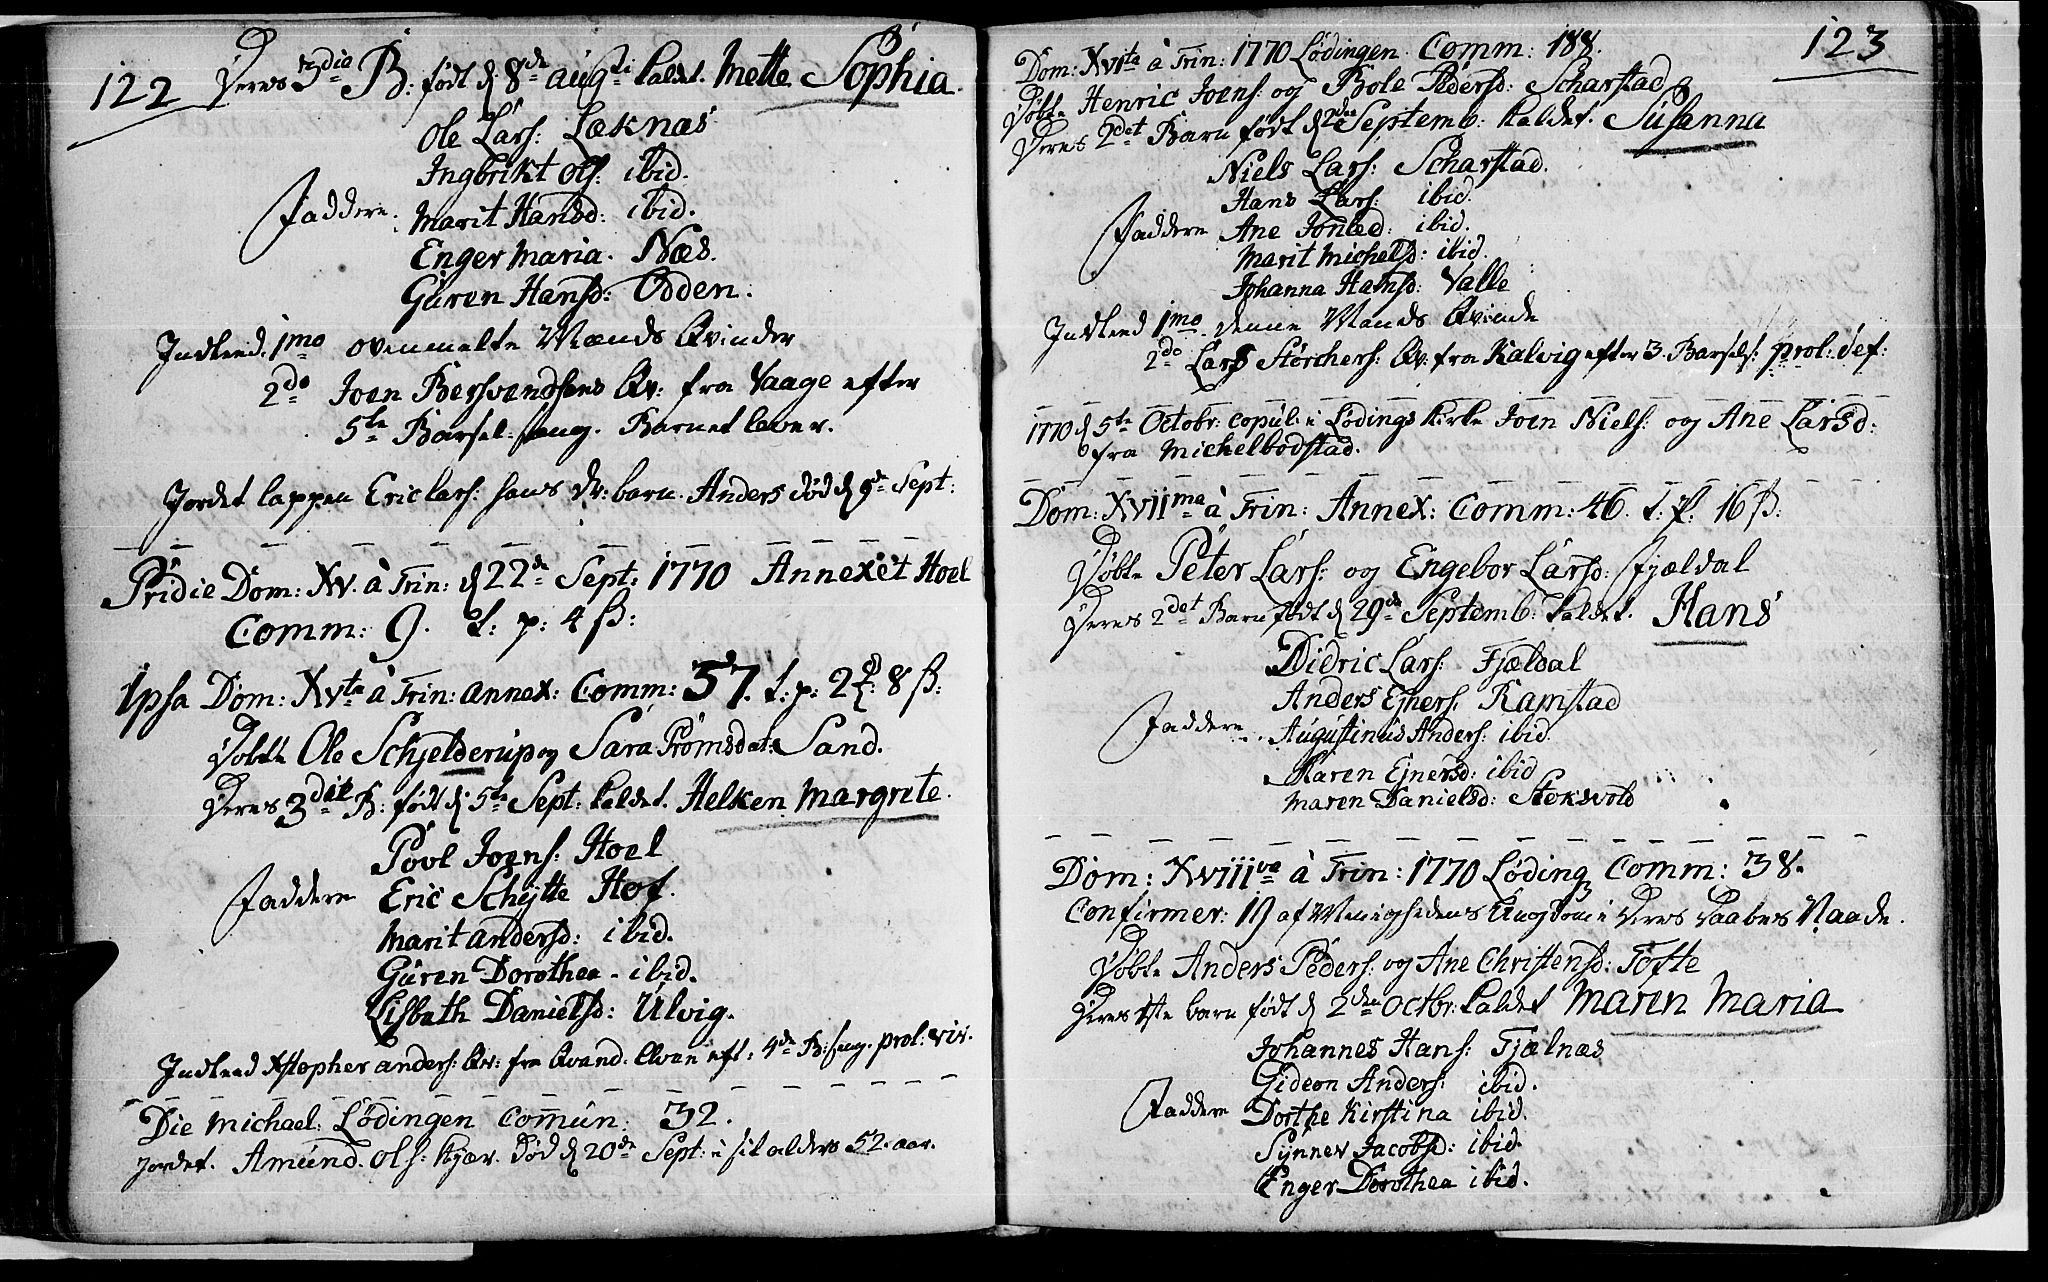 122
Deres 3die B: født d 8de Augti kaldt. Mette Sophia.
Ole Lars: Læknæs
Ingbrikt Ols: ibid.
Faddere. Marit Hansd: ibid.
Enger Maria. Næs.
Guren Hansd: Odden.
Indleed. 1mo ovenmelte Mænds Qvinder
2do Joen Bersvendsens Qv: fra Vaage efter
5te Barsel: seng. Barnet lever.
Jordet lappen Eric Lars: hans dr: barn. Anders død d 9de Sept:
Pridie Dom: XV. à Trin: d 22de Sept: 1770 Annexet Hoel
Comm: 9. t: p: 4 ß:
Ipsa Dom: XVta à Trin: annex: Comm: 57. t: p: 2 8 ß:
Døbte Ole Schjelderup og Sara Tromsdat: Sand.
Deres 3die B: født d 5te Sept: kaldet. Helken Margrete.
Povl Joens: Hoel
Faddere Eric Schytte Hof.
Marit Andersd: ibid.
Guren Dorothea - ibid.
Lisbath Danielsd: Ulvig.
Indleed Xstopher anders: Qv: fra Qvand. Elven eft: 4de B: seng. prol: viv.
Die Michael: Lødingen Comun: 32.
Jordet. Amund. Ols: Kjær. Død d 20de Sept: i sit alders 52. aar.
123
Dom: XVIta à Trin: 1770 Lødingen. Comm: 188.
Døbte Henric Joens: og Bole Pedersd: Scharstad
Deres 2det Barn født d 2den Septemb: kaldet. Susanna
Niels Lars: Scharstad.
Hans Lars: ibid.
Faddere Ane Jonsed: ibid.
Marit Michelsd: ibid.
Johanna Hansd: Valle
Indleed 1mo denne Mands Qvinde
2do Lars Størchers: Qv. fra Kalvig efter 3. Barsels: prol: def:
1770 d 5te Octobr: copul: i Lødings Kirke Joen Niels: og Ane Larsd:
fra Michelbostad.
Dom: XVIIma à Trin: Annex: Comm: 46. t: p: 16 ß:
Døbte Peter Lars: og Engebor Larsd: Fjældal
Deres 2det Barn født d 29de Septemb: kaldet. Hans
Didric Lars: Fjældal
Anders Ejners: Ramstad
Faddere. Augustinus Anders: ibid.
Karen Ejnersd: ibid
Maren Danielsd: Stoksvold
Dom: XVIIIva à Trin: 1770 Løding Comm: 38.
Confirmer: 19 af Menighedens Ungdom i Deres Daabes Naade.
Døbte Anders Peders: og Ane Christensd: Tofte
Deres 1ste barn født d 2den Octbr: kaldet Maren Maria
Johannes Hans: Fjælnæs
Gideon Anders: ibid.
Faddere Dorthe Kirstina ibid.
Synnev Jacobsd: ibid.
Enger Dorothea ibid.